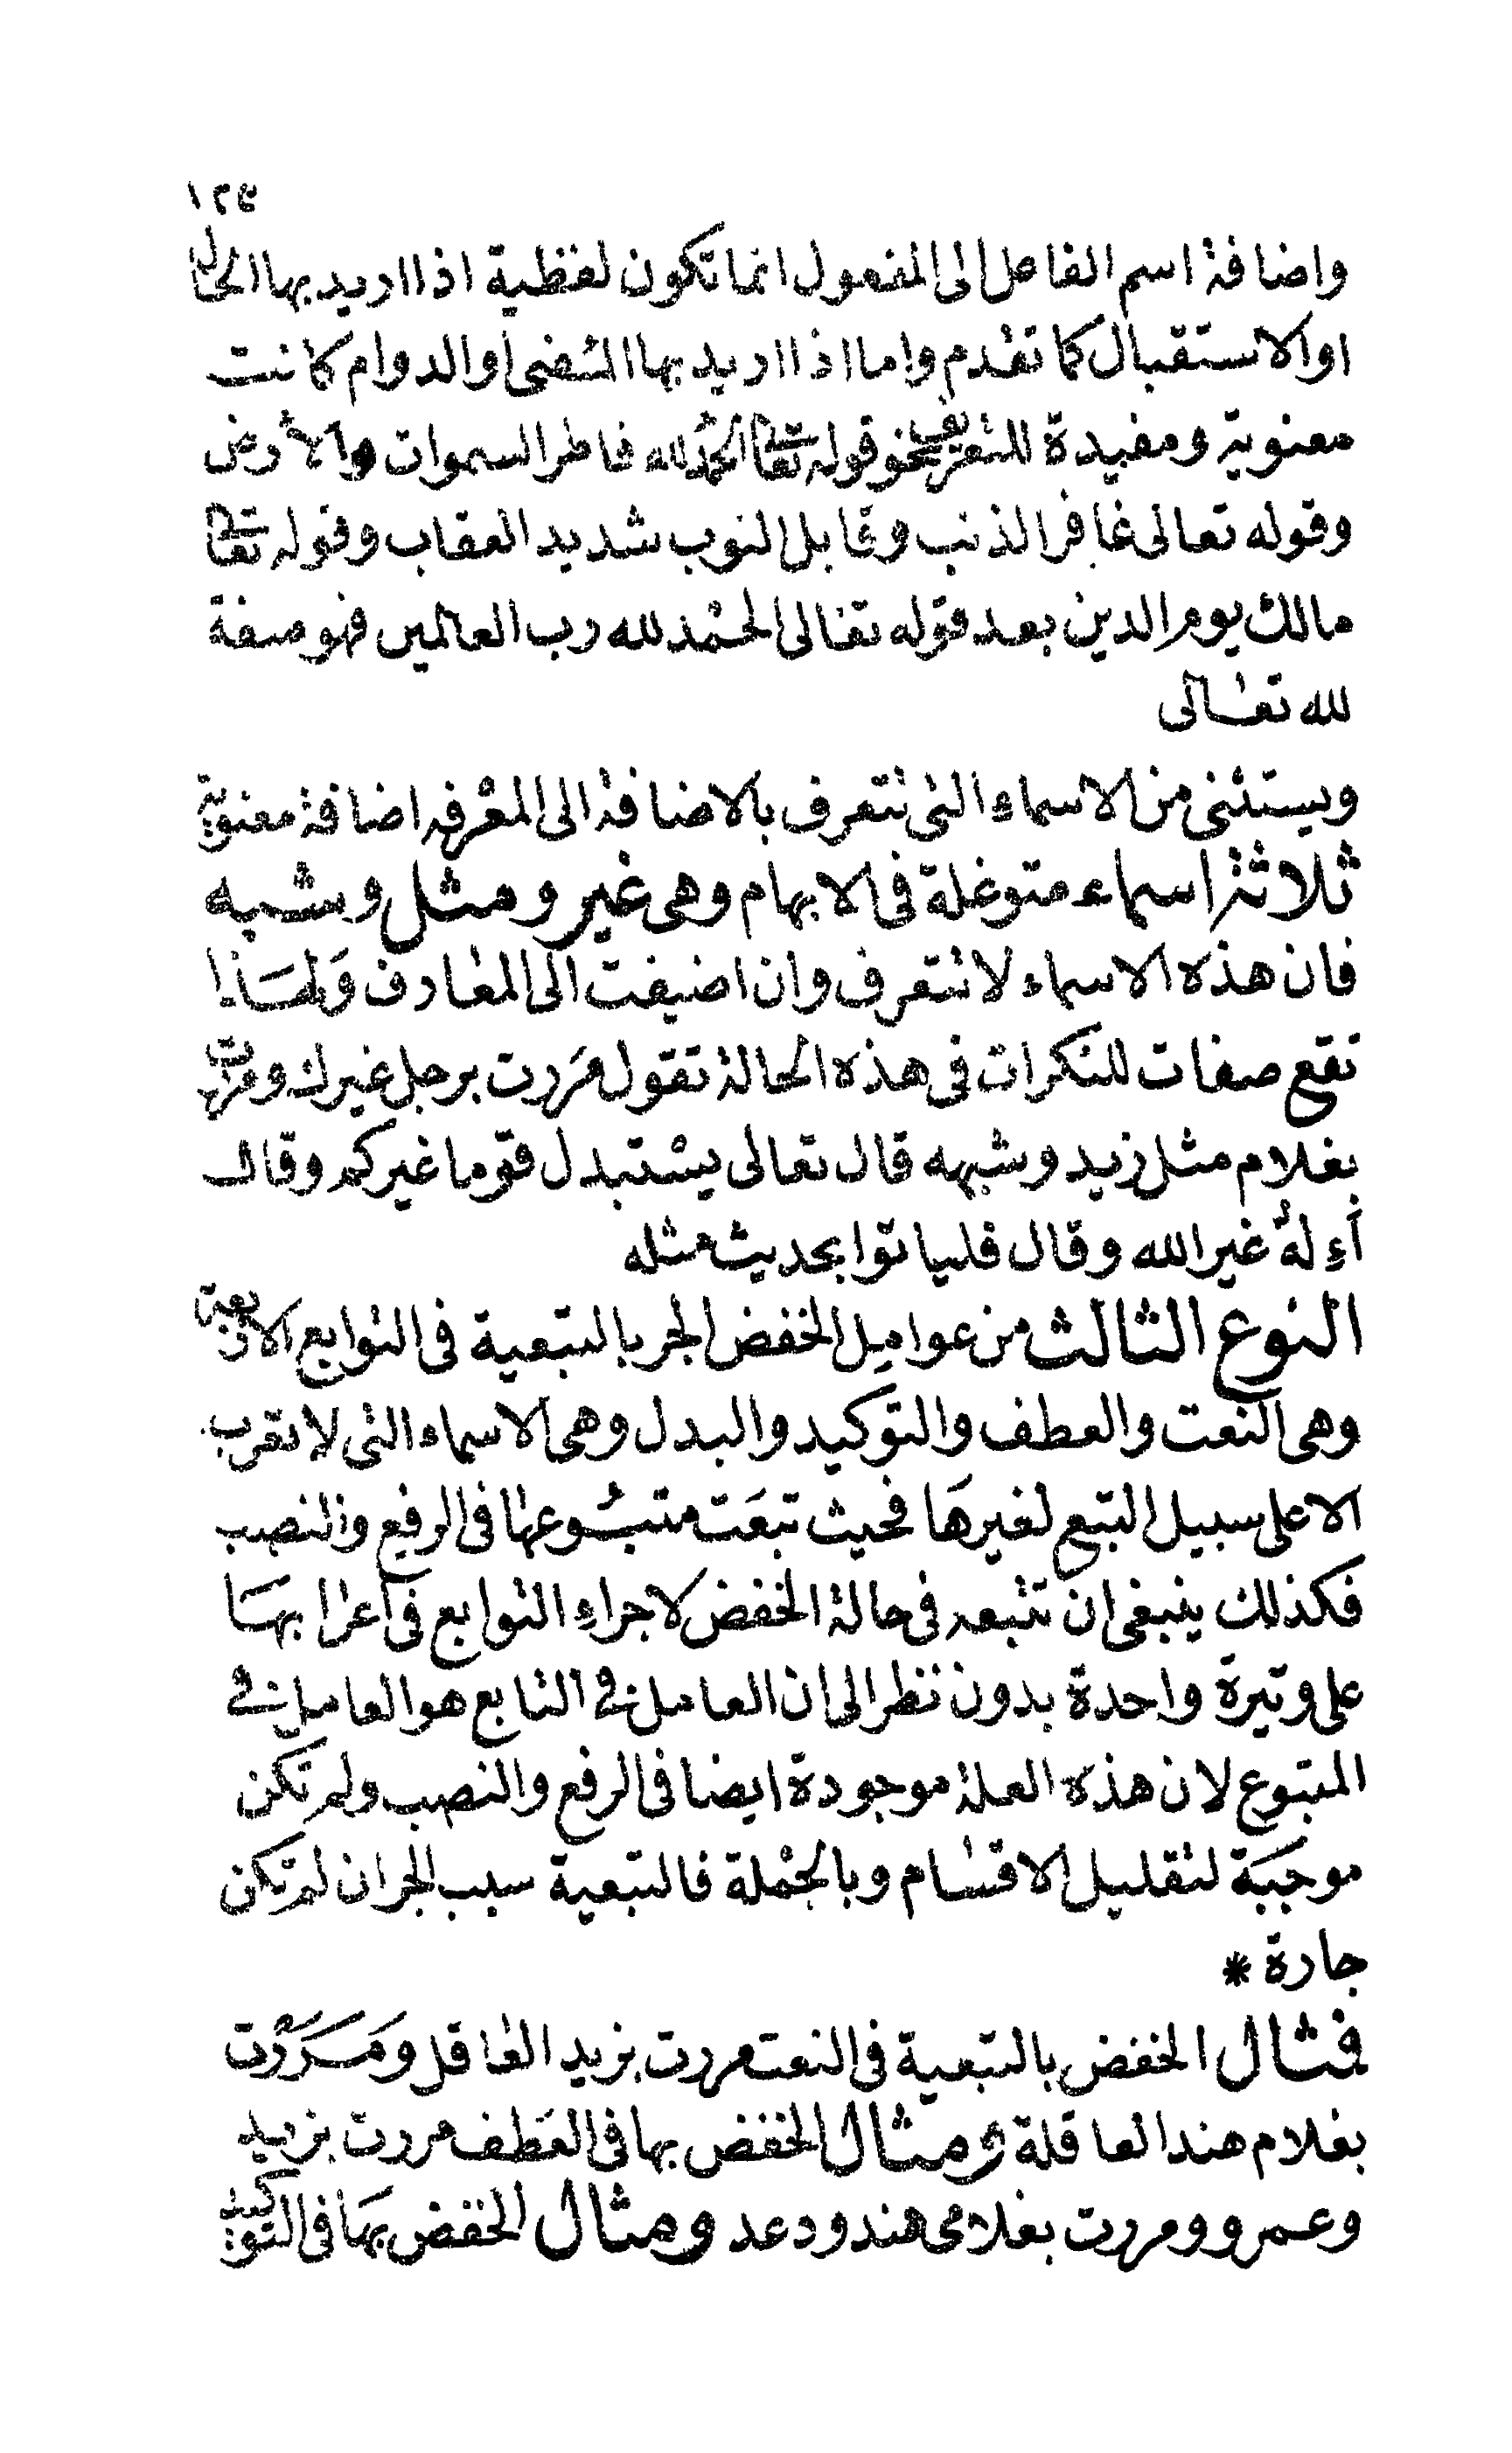 ١٢٩
واضافة اسم الفاعل الى المفعول انما تكون لفظية اذا اريد بها الحال
او الاستقبال كما تقدم واما اذا اريد بها المضى او الدوام كانت
معنوية ومفيدة للتعريف نحو قوله تعالى الحمد لله فاطر السموات والأرض
وقوله تعالى غافر الذنب وقابل التوب شديد العقاب وقوله تعالى
مالك يوم الدين بعد قوله تعالى الحمد لله رب العالمين فهو صفة
لله تعالى
ويستثنى من الاسماء التى تتعرف بالاضافة الى المعرفه اضافة معنوية
ثلاثة اسماء متوغلة فى الابهام وهى غير ومثل وشبه
فان هذه الاسماء لا تتعرف وان اضيفت الى المعارف ولهذا
تقع صفات للنكرات فى هذه الحالة تقول مررت برجل غيرك ومررت
بغلام مثل زيد وشبهه قال تعالى يستبدل قوما غيركم وقال
أءِلهٌ غير الله وقال فلياتوا بحديث مثله
النوع الثالث من عوامل الخفض الجر بالتبعية فى التوابع الاربعة
وهى النعت والعطف والتوكيد والبدل وهى الاسماء التى لا تعرب
الا على سبيل التبع لغيرهَا فحيث تبعَت متبُوعها فى الرفع والنصب
فكذلك ينبغى ان تتبعه فى حالة الخفض لاجراءِ التوابع فى اعرابهَا
على وتيرة واحدة بدون نظر الى ان العامل فى التابع هو العامل فى
المتبوع لان هذه العلة موجودة ايضا فى الرفع والنصب ولم تكن
موجبَة لتقليل الاقسام وبالجمْلة فالتبعية سبب الجر ان لم تكن
جارة *
فمثال الخفض بالتبعية فى النعت مررت بزيد العاقل ومَرَرْت
بغلام هند العاقلة ومثال الخفض بها فى العَطف مررت بزيد
وعمرو ومررت بغلامى هند ودعد ومثال الخفض بهَا فى التوكيد